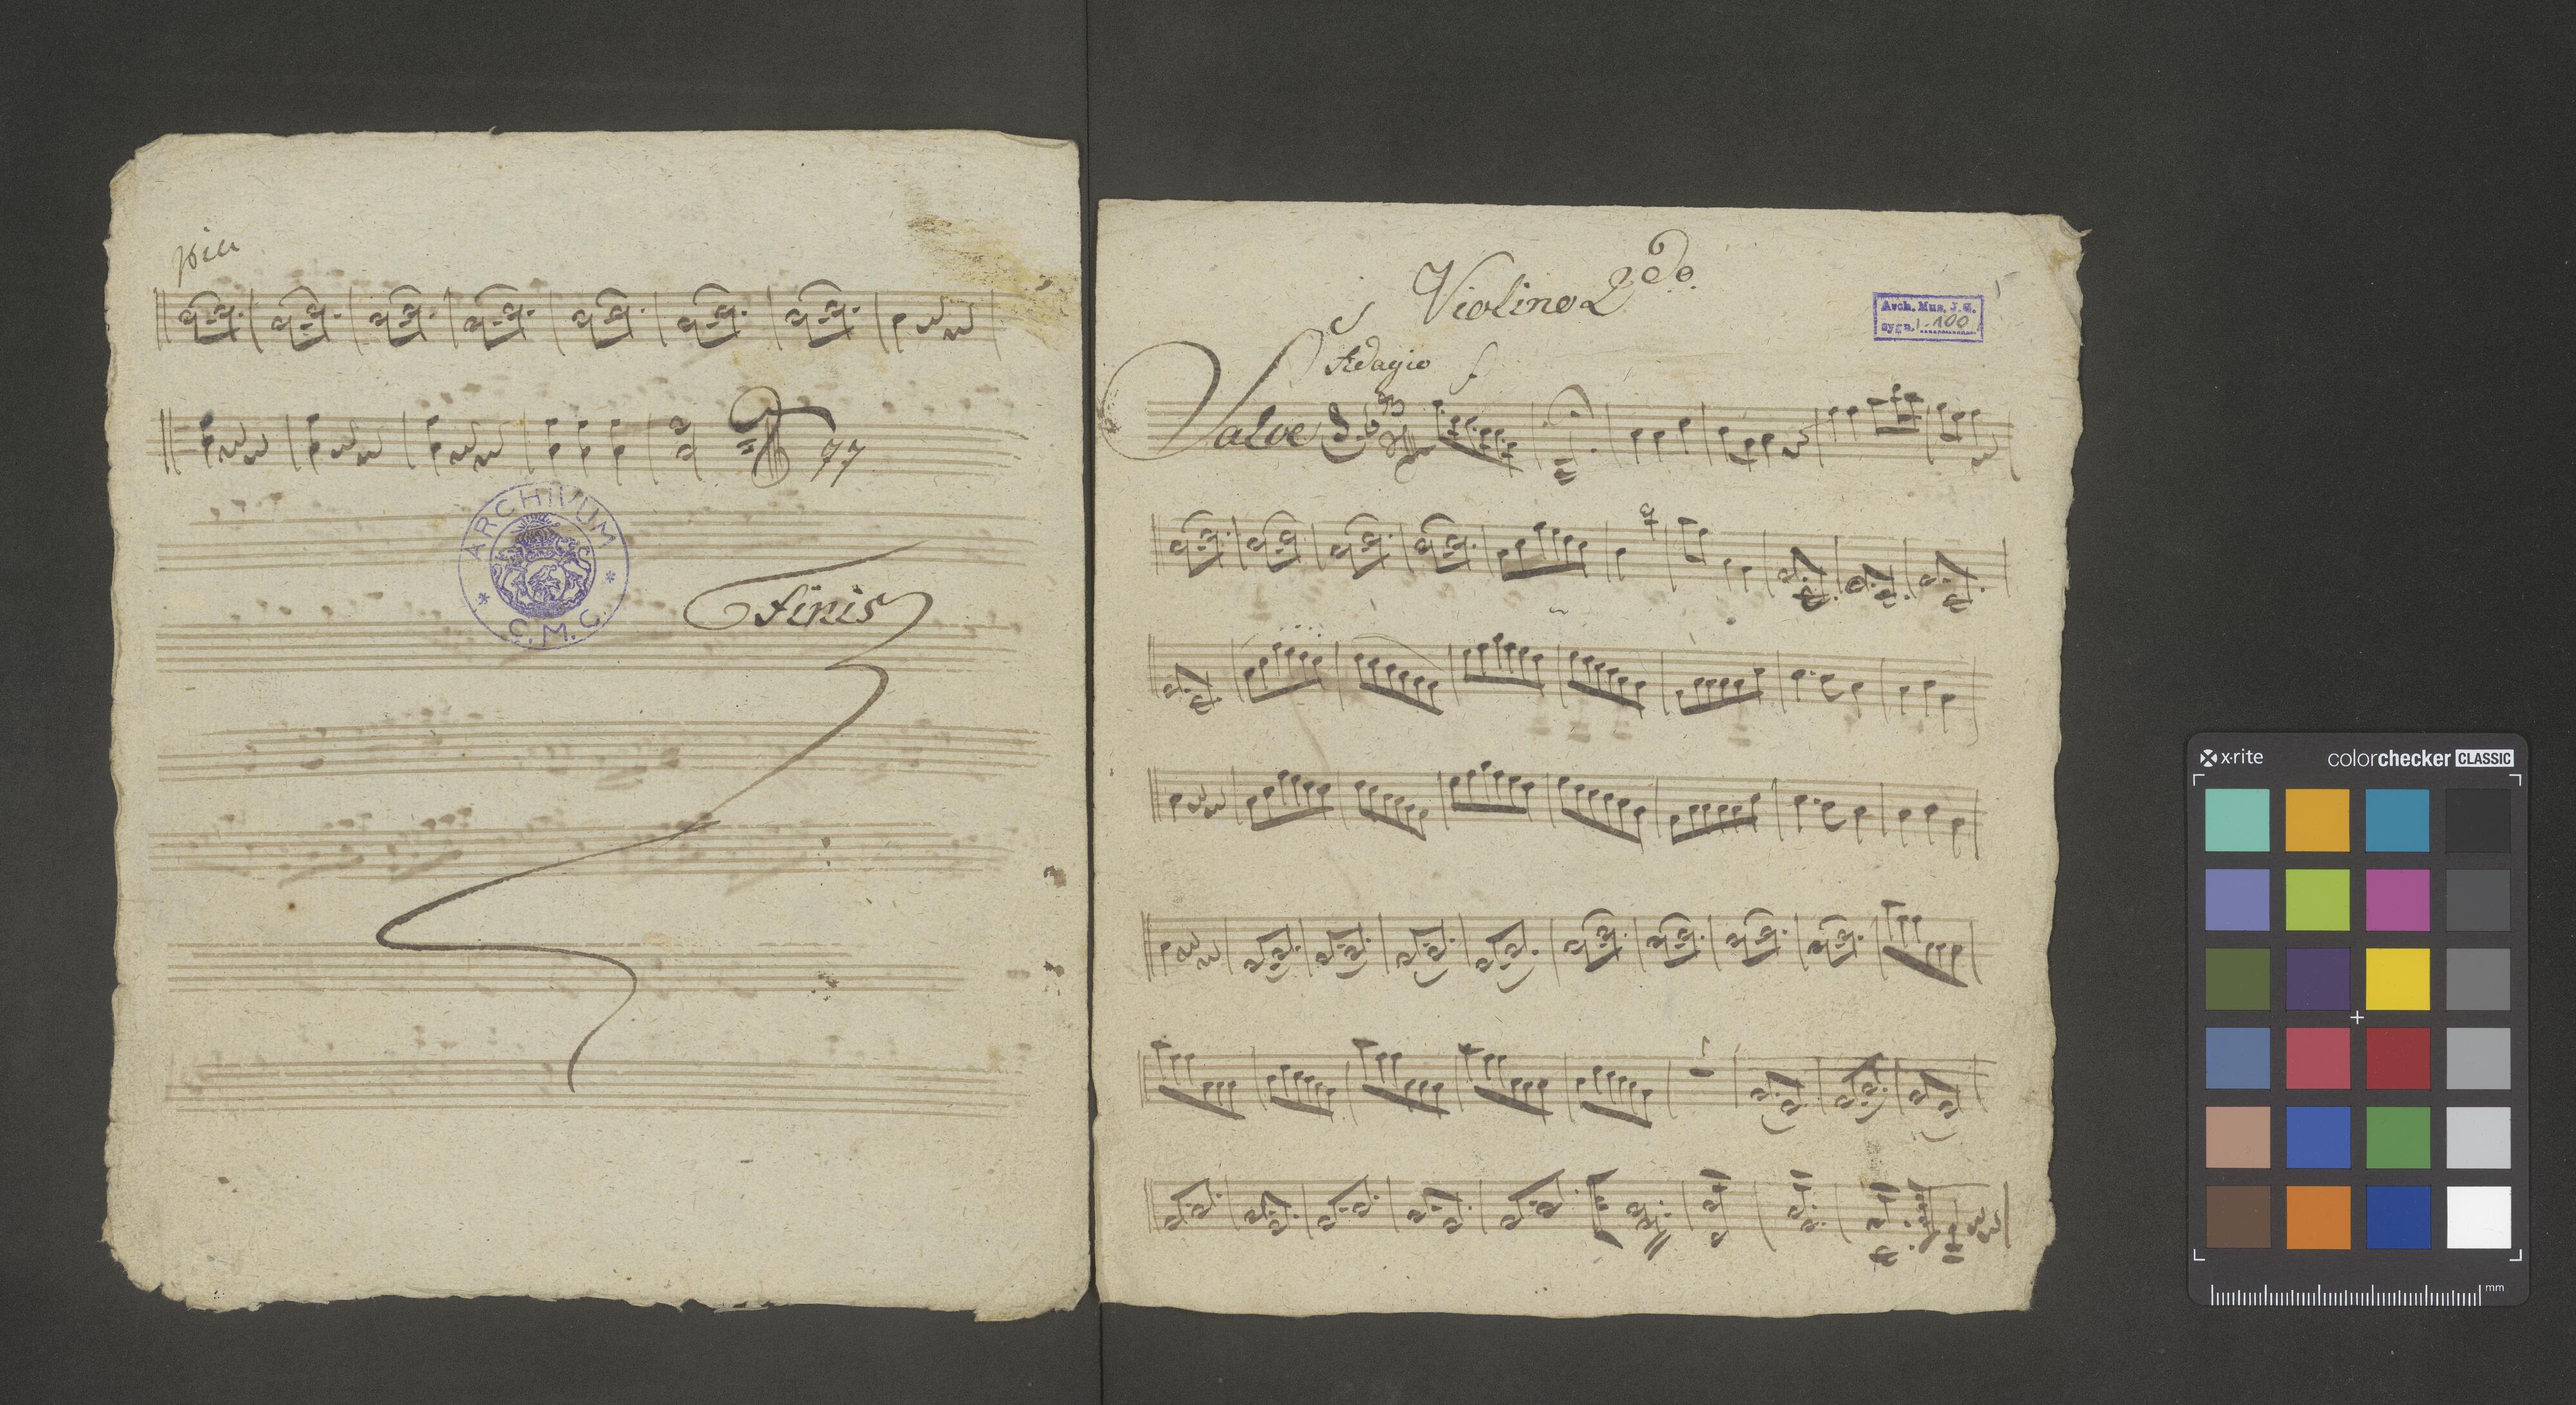 pia
ARCHIVUM
* C.M.C. *
Finis
Violino 2do.
Arch. Mus. J. G.
sygn. I-100
Adagio f
Salve
x·rite colorchecker CLASSIC
mm